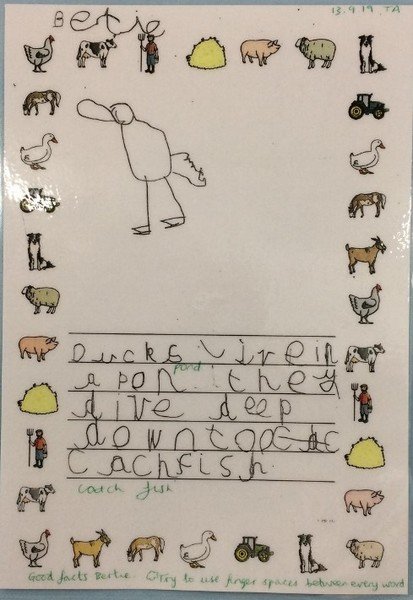 Bertie
13.9.19 TA
Ducks live in
a pon they
pond
dive deep
down to
cachfish
catch fish
Good facts Bertie. Try to use finger spaces between every word